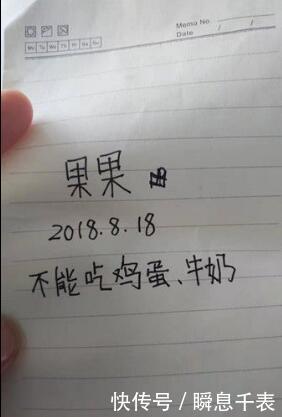 Memo No.
Date / /
Mo Tu We Th Fr Sa Su
果果
2018.8.18
不能吃鸡蛋、牛奶
快传号／瞬息千表